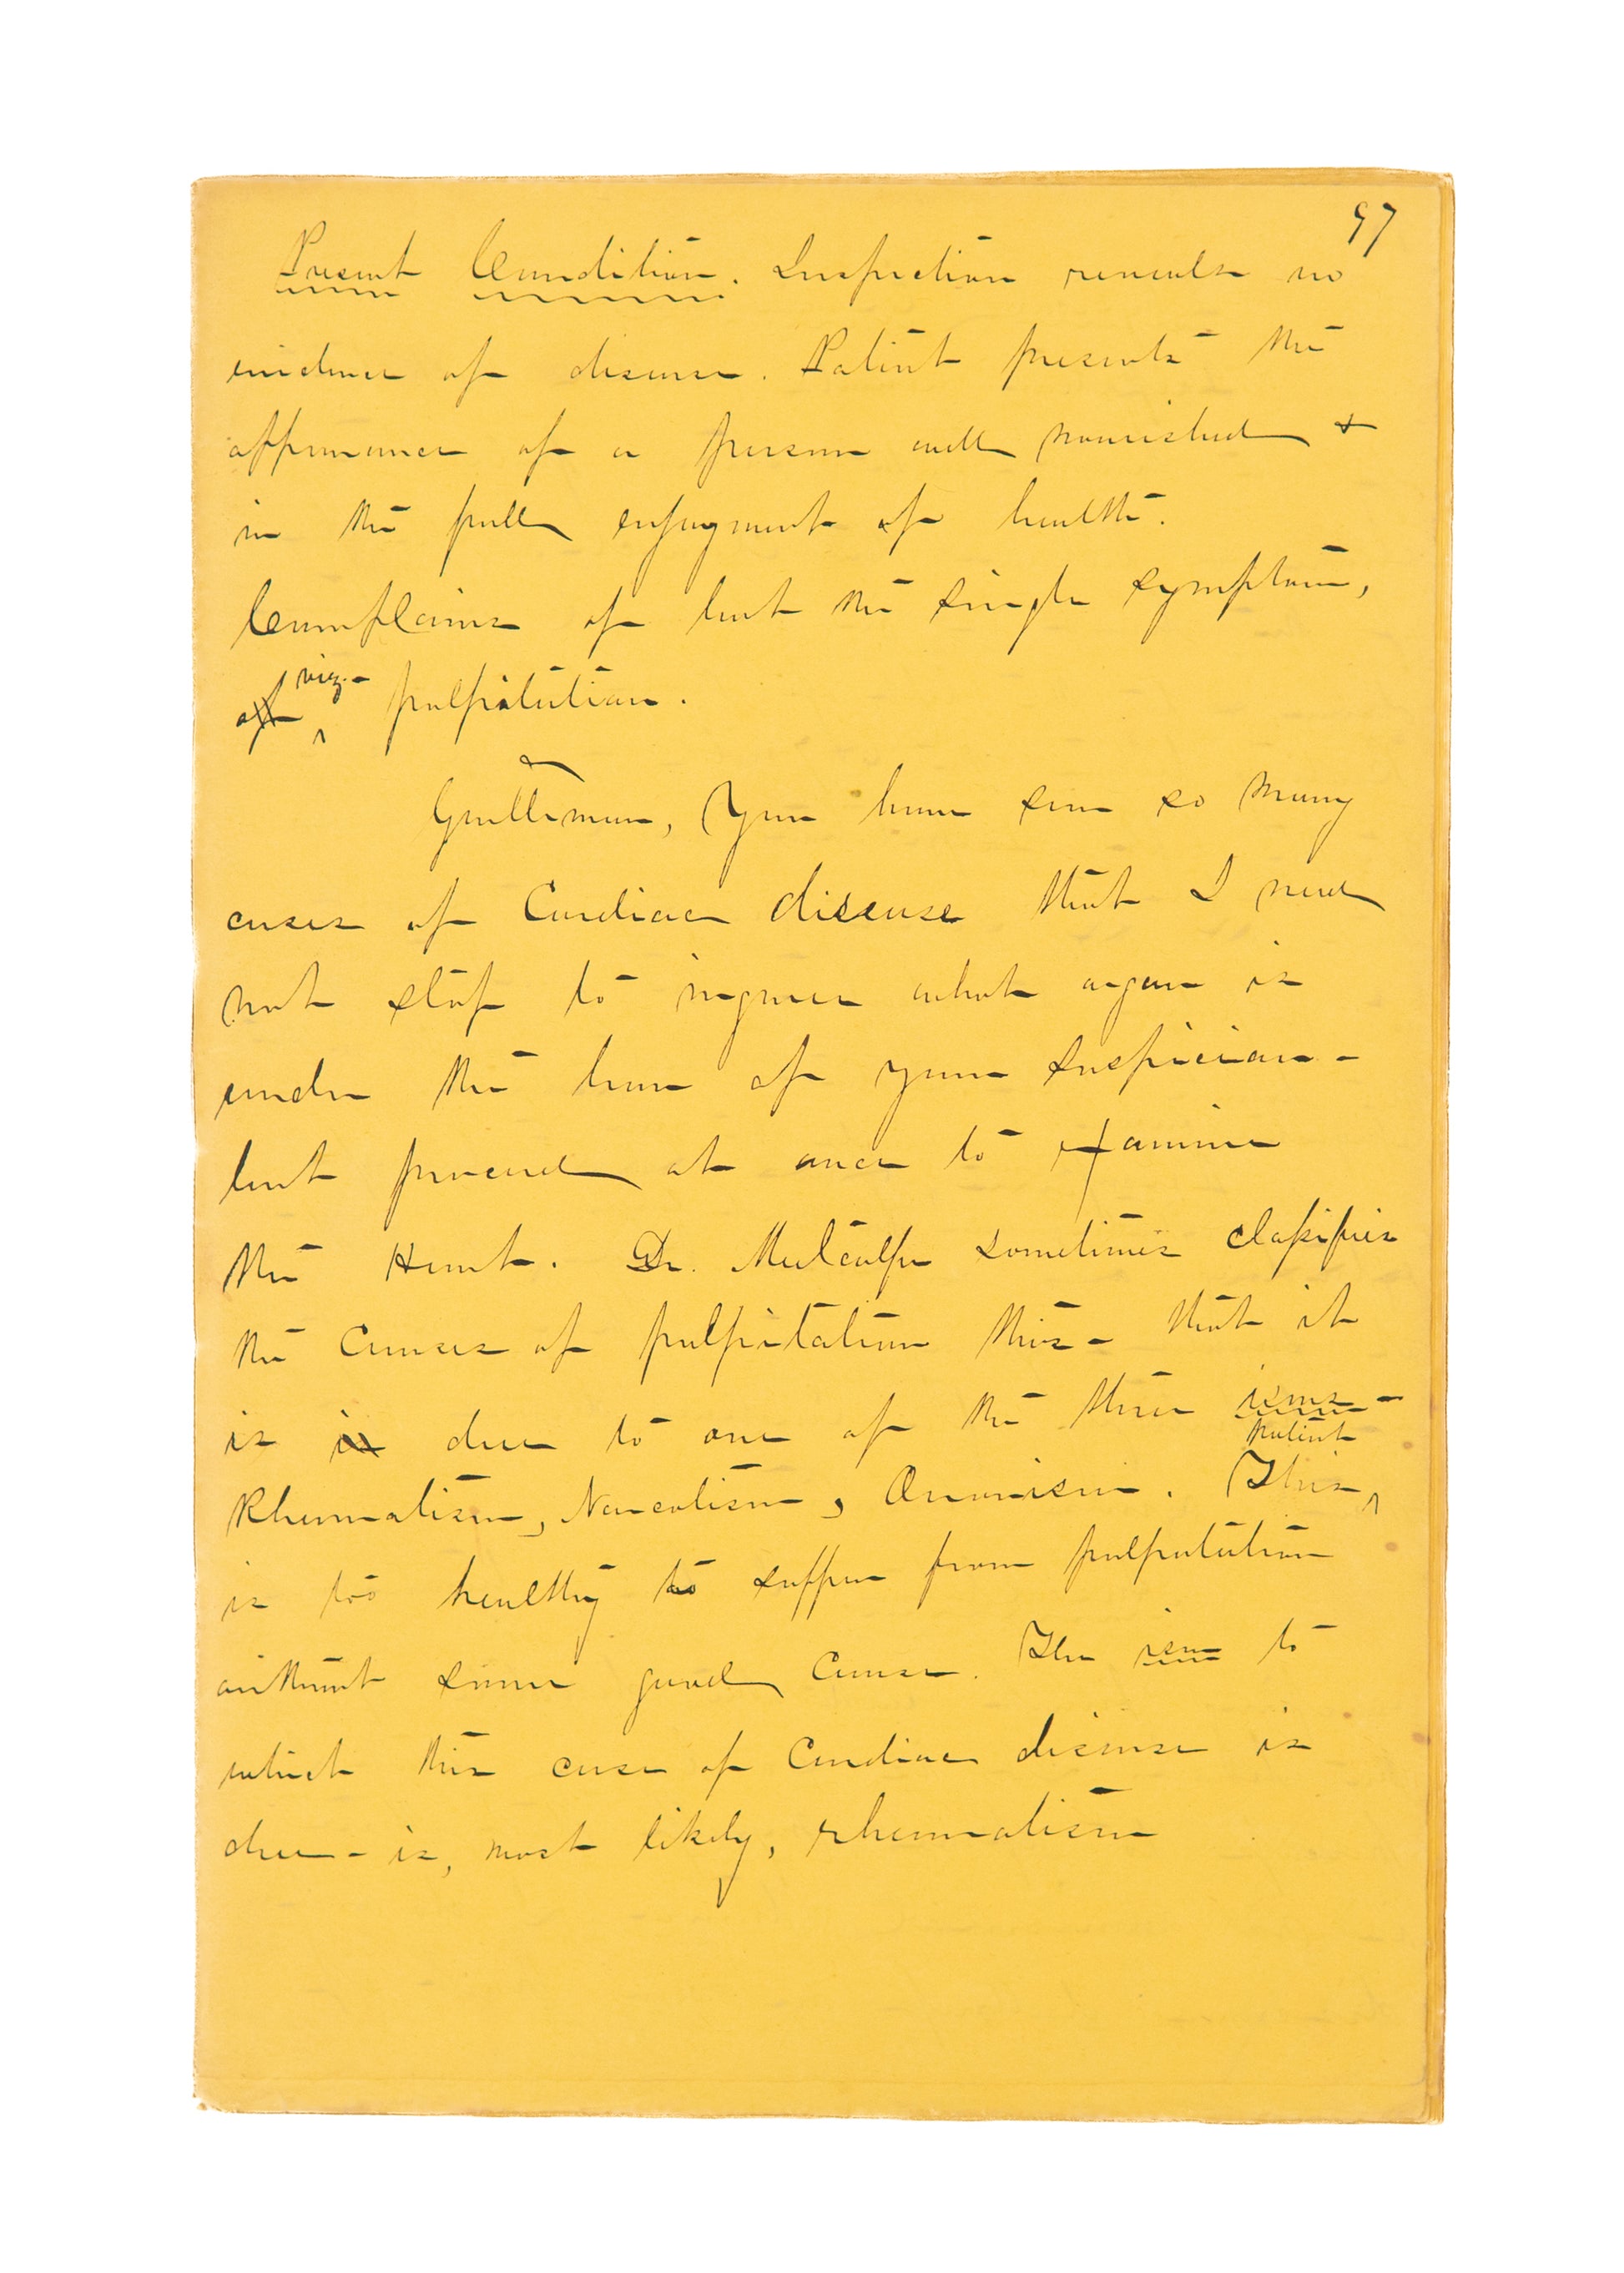 97
Present Condition. Inspection reveals no
evidence of disease. Patient presents the
appearance of a person well nourished &
in the full enjoyment of health.
Complains of but the single symptom,
of viz.- palpitation.
Gentlemen, You have seen so many
cases of Cardiac disease that I need
not stop to inquire what organ is
under the ban of your suspicion -
but proceed at once to examine
the Heart. Dr. Metcalfe sometimes classifies
the causes of palpitation thus - that it
is is due to one of the three isms -
Rheumatism, Narcotism, Onanism. This patient
is too healthy to suffer from palpatation
without some good cause. The ism to
which this case of Cardiac disease is
due - is, most likely, rheumatism